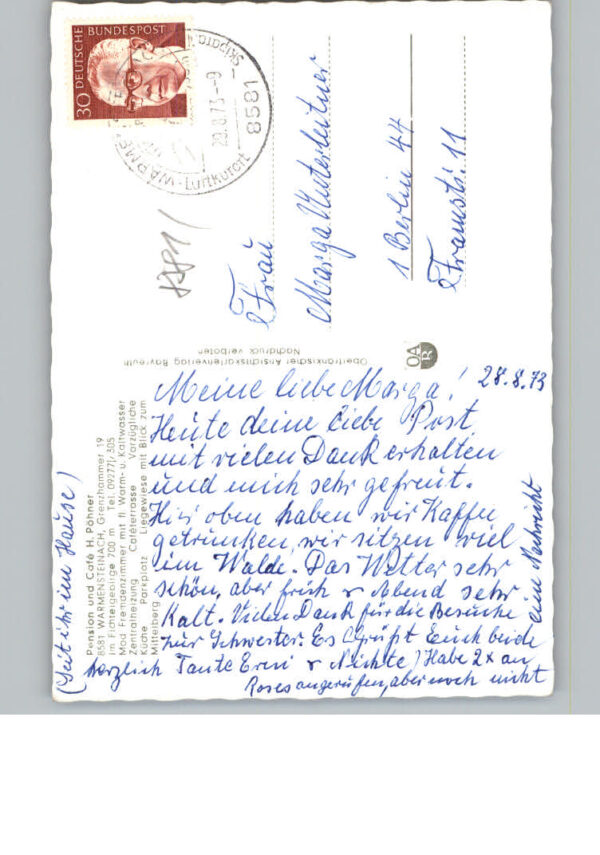 30
DEUTSCHE
BUNDESPOST
WARME
Luftkurort
29.8.73-9
8581
Frau
Marga Unterleitner
1 Berlin 44
Framstr. 11
Oberfränkischer Ansichtskartenverlag Bayreuth
Nachdruck verboten
OA
R
Pension und Café H. Pöhner
8581 WARMENSTEINACH, Grenzhammer 19
im Fichtelgebirge 700 m Tel. 09277/305
Mod. Fremdenzimmer mit fl. Warm- u. Kaltwasser
Zentralheizung Caféterrasse Vorzügliche
Küche Parkplatz Liegewiese mit Blick zum
Mittelberg
28.8.73
Meine liebe Marga!
Heute deine liebe Post
mit vielen Dank erhalten
und mich sehr gefreut.
Hier oben haben wir Kaffee
getrunken, wir sitzen viel
im Walde. Das Wetter sehr
schön, aber früh & Abend sehr
Kalt. Vielen Dank für die Besuche
zur Schwester. Es Grüßt Euch beide
herzlich Tante Erni & Nichte
(Seit ihr im Hause)
Habe 2x an
Roses angerufen, aber noch nicht
eine Nachricht